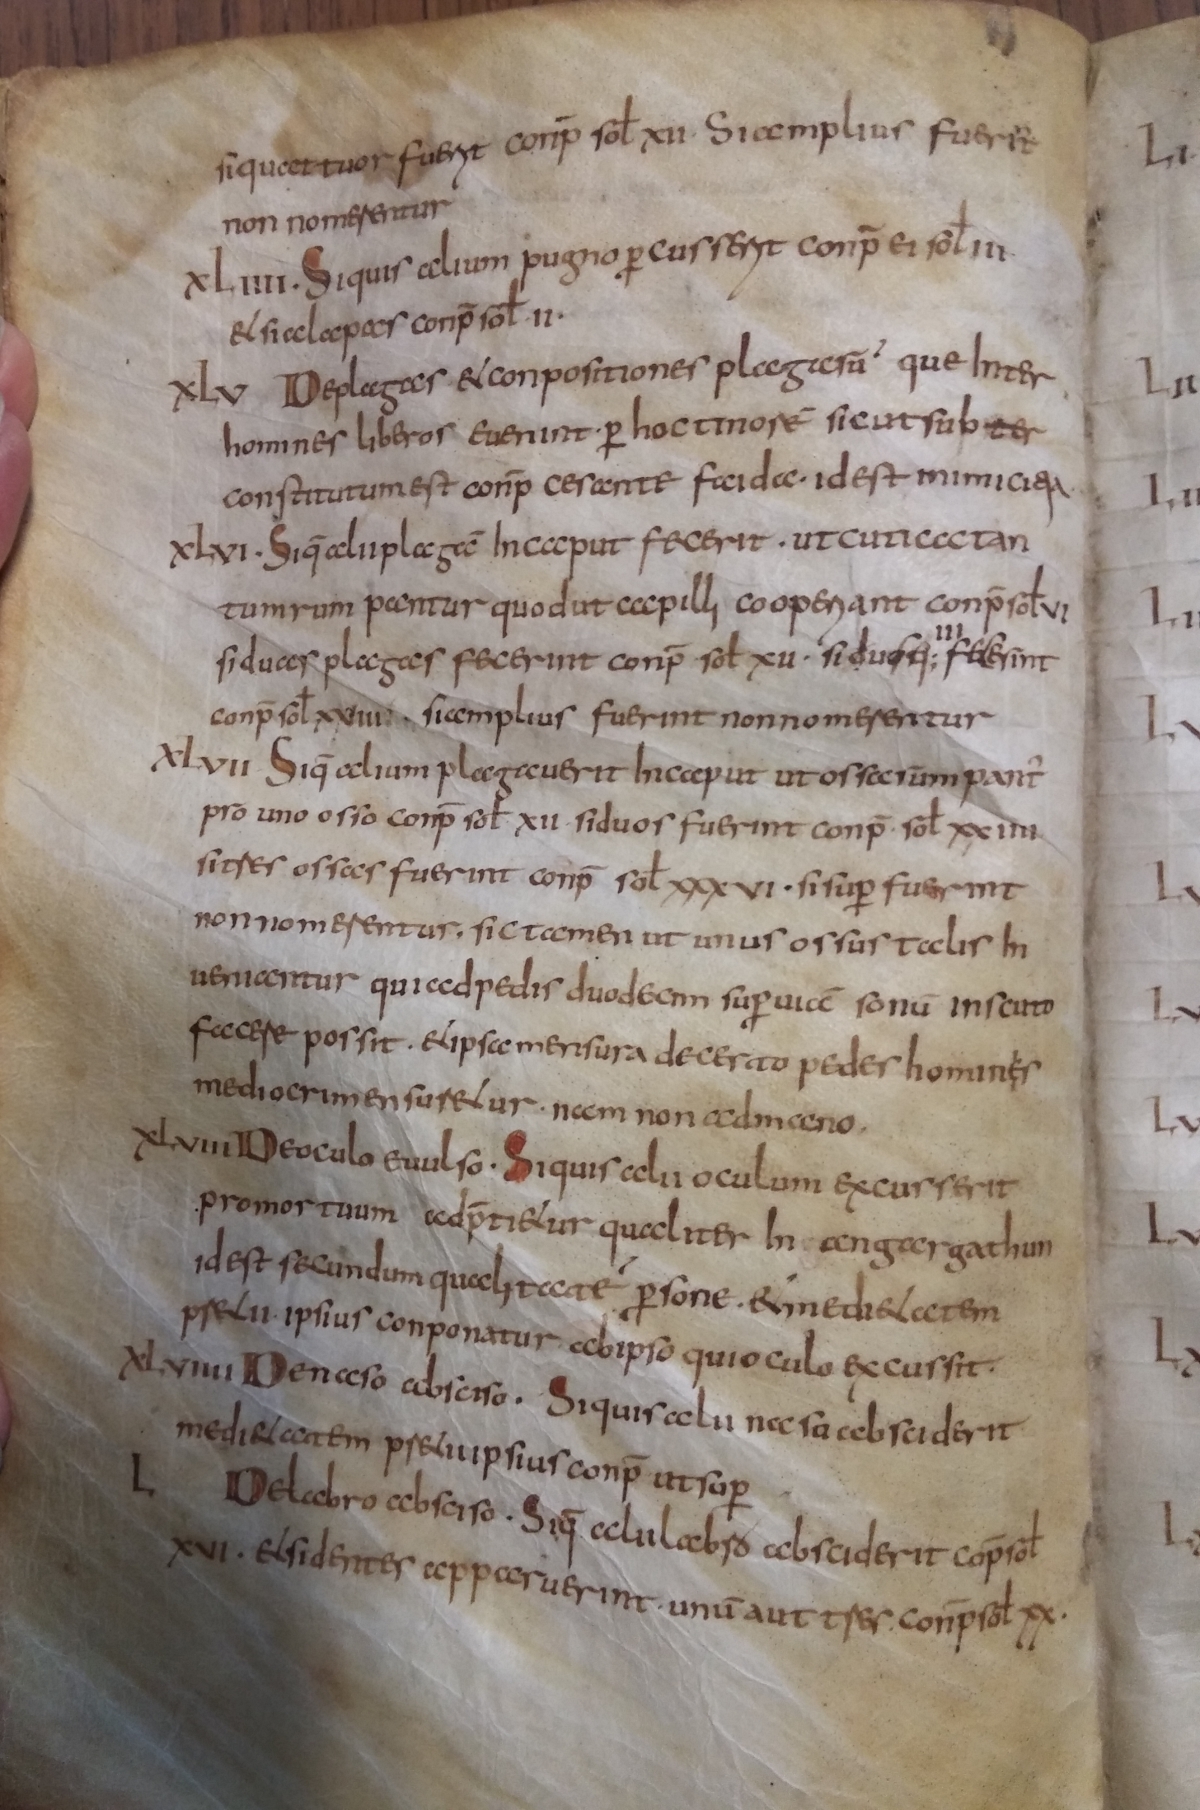 siquattuor fuerit conp̄ sol xii· Si amplius fuerit
non nomerentur
XLIIII· Siquis alium pugno p̱cusserit conp̄ ei sol iii
et si alapas conp̄ sol ii·
XLV Deplagas et conpositiones plagarū que Inter
homines liberos euenint· p̱ hoc tinorē sicut subter
constitutum est conp̄ cesante faida· id est inimicitia
XLVI· Siq̄ alii plagā In caput fecerit· ut cutica tan
tum rumpantur quod ut capilli cooperiant conp̄ sol vi
si duas plagas fecerint conp̄ sol xii· si usq; iii fecerint
conp̄ sol xviii· si amplius fuerint non nomerentur
XLVII Siq̄ alium plagauerit In caput ut ossa rūmpant᷑
pro uno osso conp̄ sol xii si duos fuerint conp̄ sol xxiiii
si tres ossas fuerint conp̄ sol xxxvi· si sup̱ fuerint
non nomerentur· sic tamen ut unus ossus talis In
ueniantur qui ad pedis duodecim sup̱ uiā sonū in scuto
facere possit· et ipsa mensura de certo pedes hominis
mediocri mensuretur· nam non ad mano·
XLVIII De oculo euulso· Siquis alii oculum excusserit
pro mortuum adp̄tietur qualiter In angargathun
id est secundum qualitatē p̱sone· et medietatem
pretii ipsius conponatur ab ipso qui oculo excussit·
XLVIIII De naso absciso· Siquis alii nasū absciderit
medietatem pretii ipsius conp̄ ut sup̱
L De labro absciso· Siq̄ alii labrū absciderit cōp̄ sol
xvi· et si dentes apparuerint· unū aut tres conp̄ sol xx·
LI
LII
LX